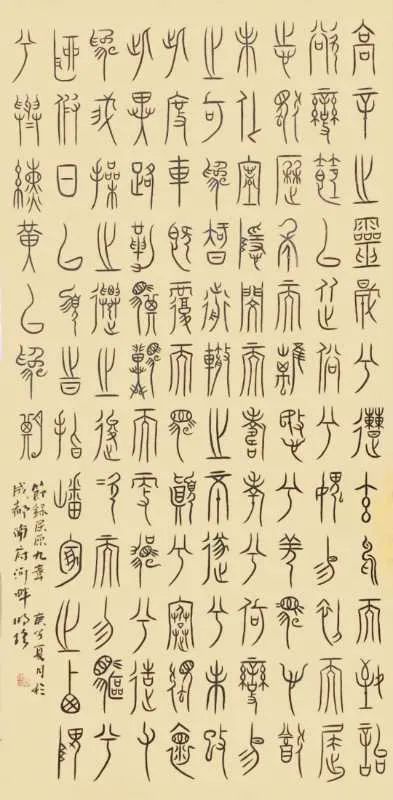 高辛之靈晟兮遭玄鳥而致詒
欲變節以從俗兮媿易初而屈
志獨歷年而離愍兮羌馮心猶
未化寧隱閔而壽考兮何變易
之可為知前轍之不遂兮未改
此度車既覆而馬顛兮蹇獨懷
此異路勒騏驥而更駕兮造父
為我操之遷逡次而勿驅兮
聊假日以須時指嶓冢之西隈
兮與纁黃以為期
節錄屈原九章 庚寅夏月於
成都南府河畔